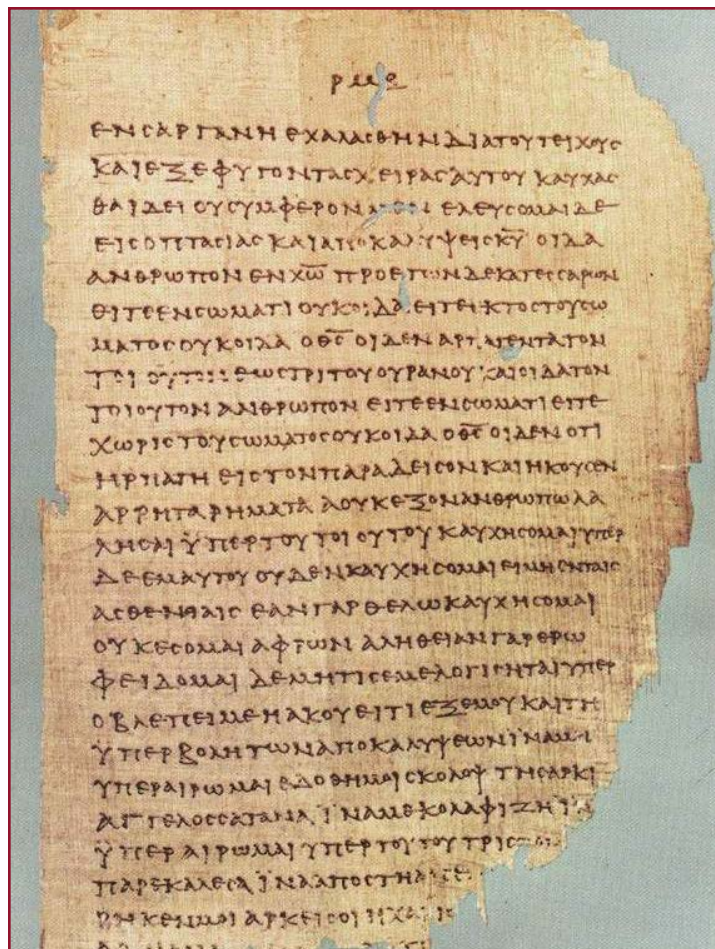 ρμε
ΕΝCΑΡΓΑΝΗ ΕΧΑΛΑCΘΗΝ ΔΙΑΤΟΥΤΕΙΧΟΥC
ΚΑΙΕΞΕΦΥΓΟΝΤΑCΧΕΙΡΑCΑΥΤΟΥ ΚΑΥΧΑC
ΘΑΙΔΕΙ ΟΥCΥΜΦΕΡΟΝ ΕΛΕΥCΟΜΑΙΔΕ
ΕΙCΟΠΤΑCΙΑC ΚΑΙΑΠΟΚΑΛΥΨΕΙCΚ̅Υ̅ ΟΙΔΑ
ΑΝΘΡΩΠΟΝ ΕΝΧ̅Ω̅ ΠΡΟΕΤΩΝΔΕΚΑΤΕCCΑΡΩΝ
ΕΙΤΕΕΝCΩΜΑΤΙ ΟΥΚΟΙΔΑ ΕΙΤΕΕΚΤΟCΤΟΥCΩ
ΜΑΤΟCΟΥΚΟΙΔΑ ΟΘ̅C̅ ΟΙΔΕΝ ΑΡΠΑΓΕΝΤΑΤΟΝ
ΤΟΙΟΥΤΟΝ ΕΩCΤΡΙΤΟΥΟΥΡΑΝΟΥ ΚΑΙΟΙΔΑΤΟΝ
ΤΟΙΟΥΤΟΝ ΑΝΘΡΩΠΟΝ ΕΙΤΕΕΝCΩΜΑΤΙ ΕΙΤΕ
ΧΩΡΙCΤΟΥCΩΜΑΤΟCΟΥΚΟΙΔΑ ΟΘ̅C̅ ΟΙΔΕΝ ΟΤΙ
ΗΡΠΑΓΗ ΕΙCΤΟΝΠΑΡΑΔΕΙCΟΝ ΚΑΙΗΚΟΥCΕΝ
ΑΡΡΗΤΑΡΗΜΑΤΑ ΑΟΥΚΕΞΟΝΑΝΘΡΩΠΩΛΑ
ΛΗCΑΙ ΫΠΕΡΤΟΥΤΟΙΟΥΤΟΥ ΚΑΥΧΗCΟΜΑΙΥΠΕΡ
ΔΕΕΜΑΥΤΟΥ ΟΥΔΕΝΚΑΥΧΗCΟΜΑΙΕΙΜΗΕΝΤΑΙC
ΑCΘΕΝΕΙΑΙC ΕΑΝΓΑΡΘΕΛΩΚΑΥΧΗCΟΜΑΙ
ΟΥΚΕCΟΜΑΙ ΑΦΡΩΝ ΑΛΗΘΕΙΑΝΓΑΡΕΡΩ
ΦΕΙΔΟΜΑΙ ΔΕΜΗΤΙCΕΜΕΛΟΓΙCΗΤΑΙΥΠΕΡ
ΟΒΛΕΠΕΙΜΕΗΑΚΟΥΕΙΤΙΕΞΕΜΟΥ ΚΑΙΤΗ
ΫΠΕΡΒΟΛΗΤΩΝΑΠΟΚΑΛΥΨΕΩΝΪΝΑΜΗ
ΥΠΕΡΑΙΡΩΜΑΙ ΕΔΟΘΗΜΟΙCΚΟΛΟΨ ΤΗCΑΡΚΙ
ΑΓΓΕΛΟCCΑΤΑΝΑ ΪΝΑΜΕΚΟΛΑΦΙΖΗ
ΫΠΕΡΑΙΡΩΜΑΙ ΥΠΕΡΤΟΥΤΟΥ ΤΡΙC
ΠΑΡΕΚΑΛΕCΑ ΪΝΑΑΠΟCΤΗ
ΡΗΚΕΝΜΟΙ ΑΡΚΕΙCΟΙΗΧΑΡΙC